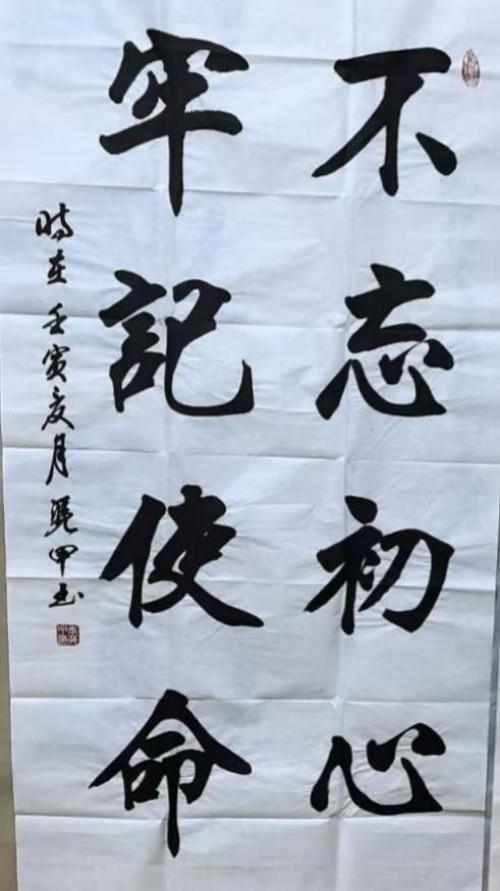 不忘初心
牢記使命
時在壬寅亥月 甲书